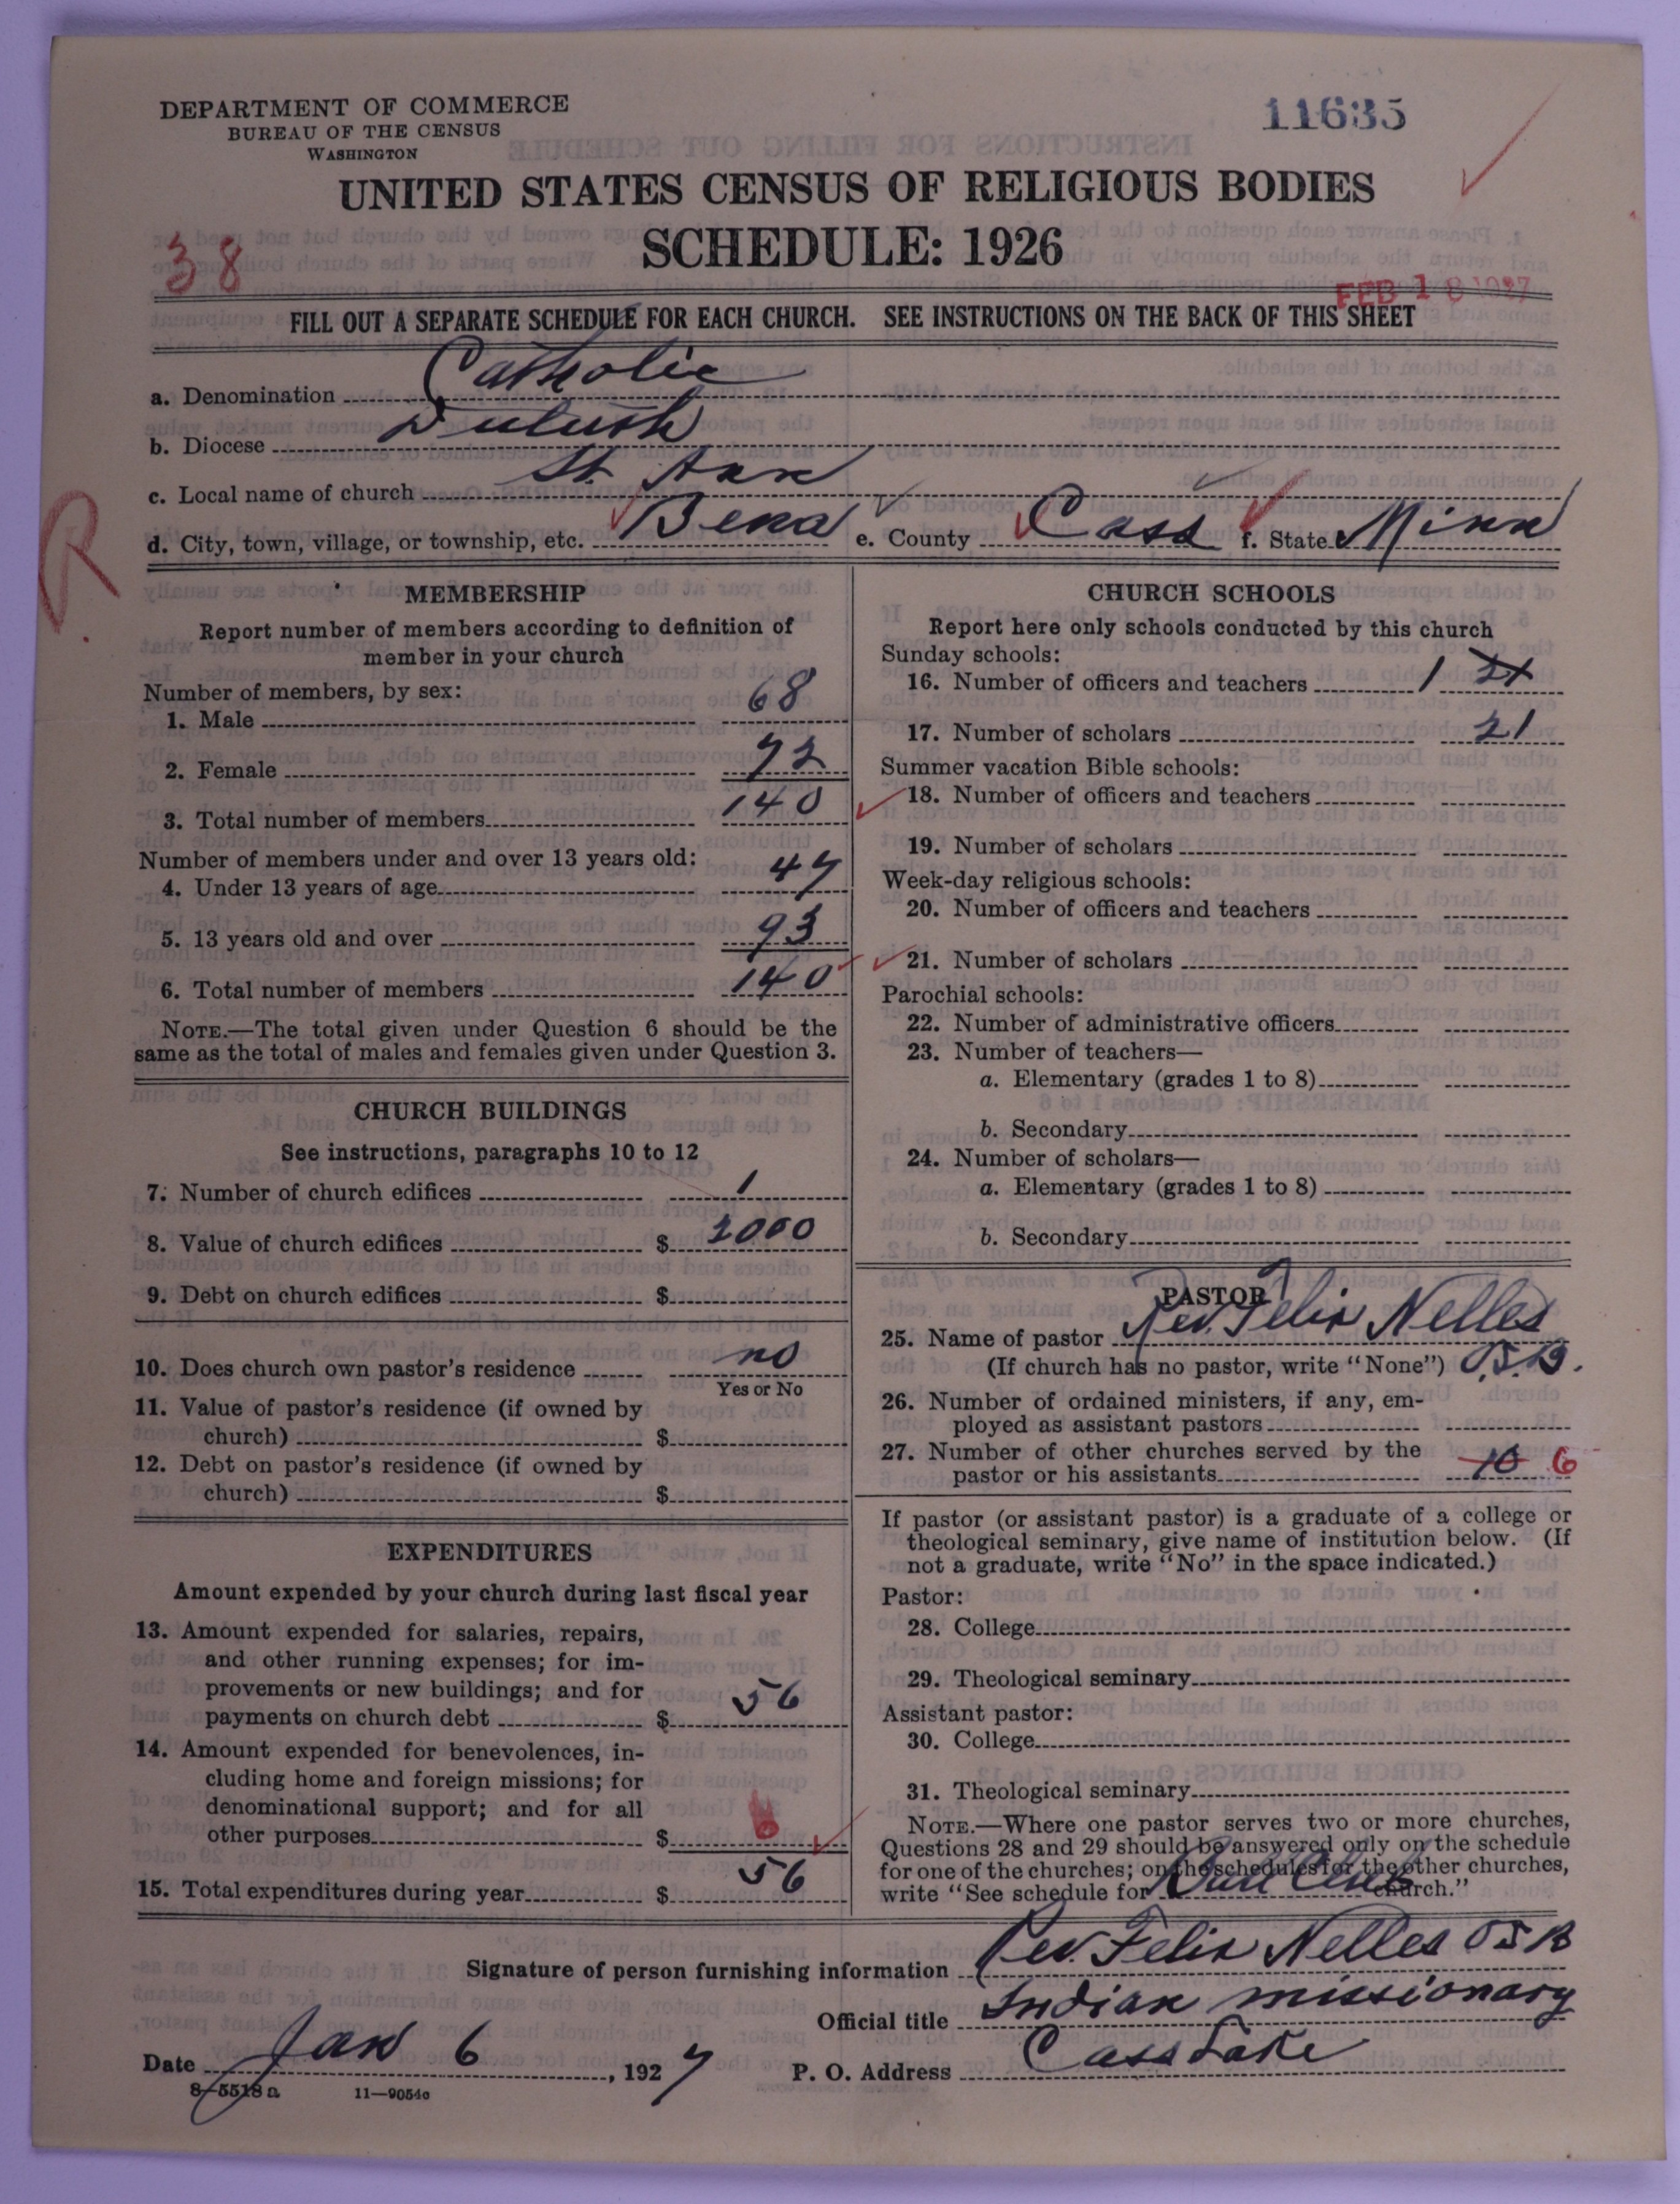 DEPARTMENT OF COMMERCE
BUREAU OF THE CENSUS
WASHINGTON
11635
UNITED STATES CENSUS OF RELIGIOUS BODIES
SCHEDULE: 1926
38
FEB 18 1927
FILL OUT A SEPARATE SCHEDULE FOR EACH CHURCH. SEE INSTRUCTIONS ON THE BACK OF THIS SHEET
a. Denomination Catholic
b. Diocese Duluth
c. Local name of church St. Ann
d. City, town, village, or township, etc. Bena e. County Cass f. State Minn
R
MEMBERSHIP
Report number of members according to definition of
member in your church
Number of members, by sex:
1. Male 68
2. Female 72
3. Total number of members 140
Number of members under and over 13 years old:
4. Under 13 years of age 47
5. 13 years old and over 93
6. Total number of members 140
NOTE.—The total given under Question 6 should be the
same as the total of males and females given under Question 3.
CHURCH BUILDINGS
See instructions, paragraphs 10 to 12
7. Number of church edifices 1
8. Value of church edifices $ 2000
9. Debt on church edifices $
10. Does church own pastor's residence no
Yes or No
11. Value of pastor's residence (if owned by
church) $
12. Debt on pastor's residence (if owned by
church) $
EXPENDITURES
Amount expended by your church during last fiscal year
13. Amount expended for salaries, repairs,
and other running expenses; for im-
provements or new buildings; and for
payments on church debt $ 56
14. Amount expended for benevolences, in-
cluding home and foreign missions; for
denominational support; and for all
other purposes $
15. Total expenditures during year $ 56
CHURCH SCHOOLS
Report here only schools conducted by this church
Sunday schools:
16. Number of officers and teachers 1 21
17. Number of scholars 21
Summer vacation Bible schools:
18. Number of officers and teachers
19. Number of scholars
Week-day religious schools:
20. Number of officers and teachers
21. Number of scholars
Parochial schools:
22. Number of administrative officers
23. Number of teachers—
a. Elementary (grades 1 to 8)
b. Secondary
24. Number of scholars—
a. Elementary (grades 1 to 8)
b. Secondary
PASTOR
25. Name of pastor Rev. Felix Nelles
(If church has no pastor, write "None") O.S.B.
26. Number of ordained ministers, if any, em-
ployed as assistant pastors
27. Number of other churches served by the
pastor or his assistants 10 6
If pastor (or assistant pastor) is a graduate of a college or
theological seminary, give name of institution below. (If
not a graduate, write "No" in the space indicated.)
Pastor:
28. College
29. Theological seminary
Assistant pastor:
30. College
31. Theological seminary
NOTE.—Where one pastor serves two or more churches,
Questions 28 and 29 should be answered only on the schedule
for one of the churches; on the schedules for the other churches,
write "See schedule for church."
Signature of person furnishing information Rev. Felix Nelles OSB
Official title Indian missionary
Date Jan 6, 1927 P. O. Address Cass Lake
8-5518a 11-9054c